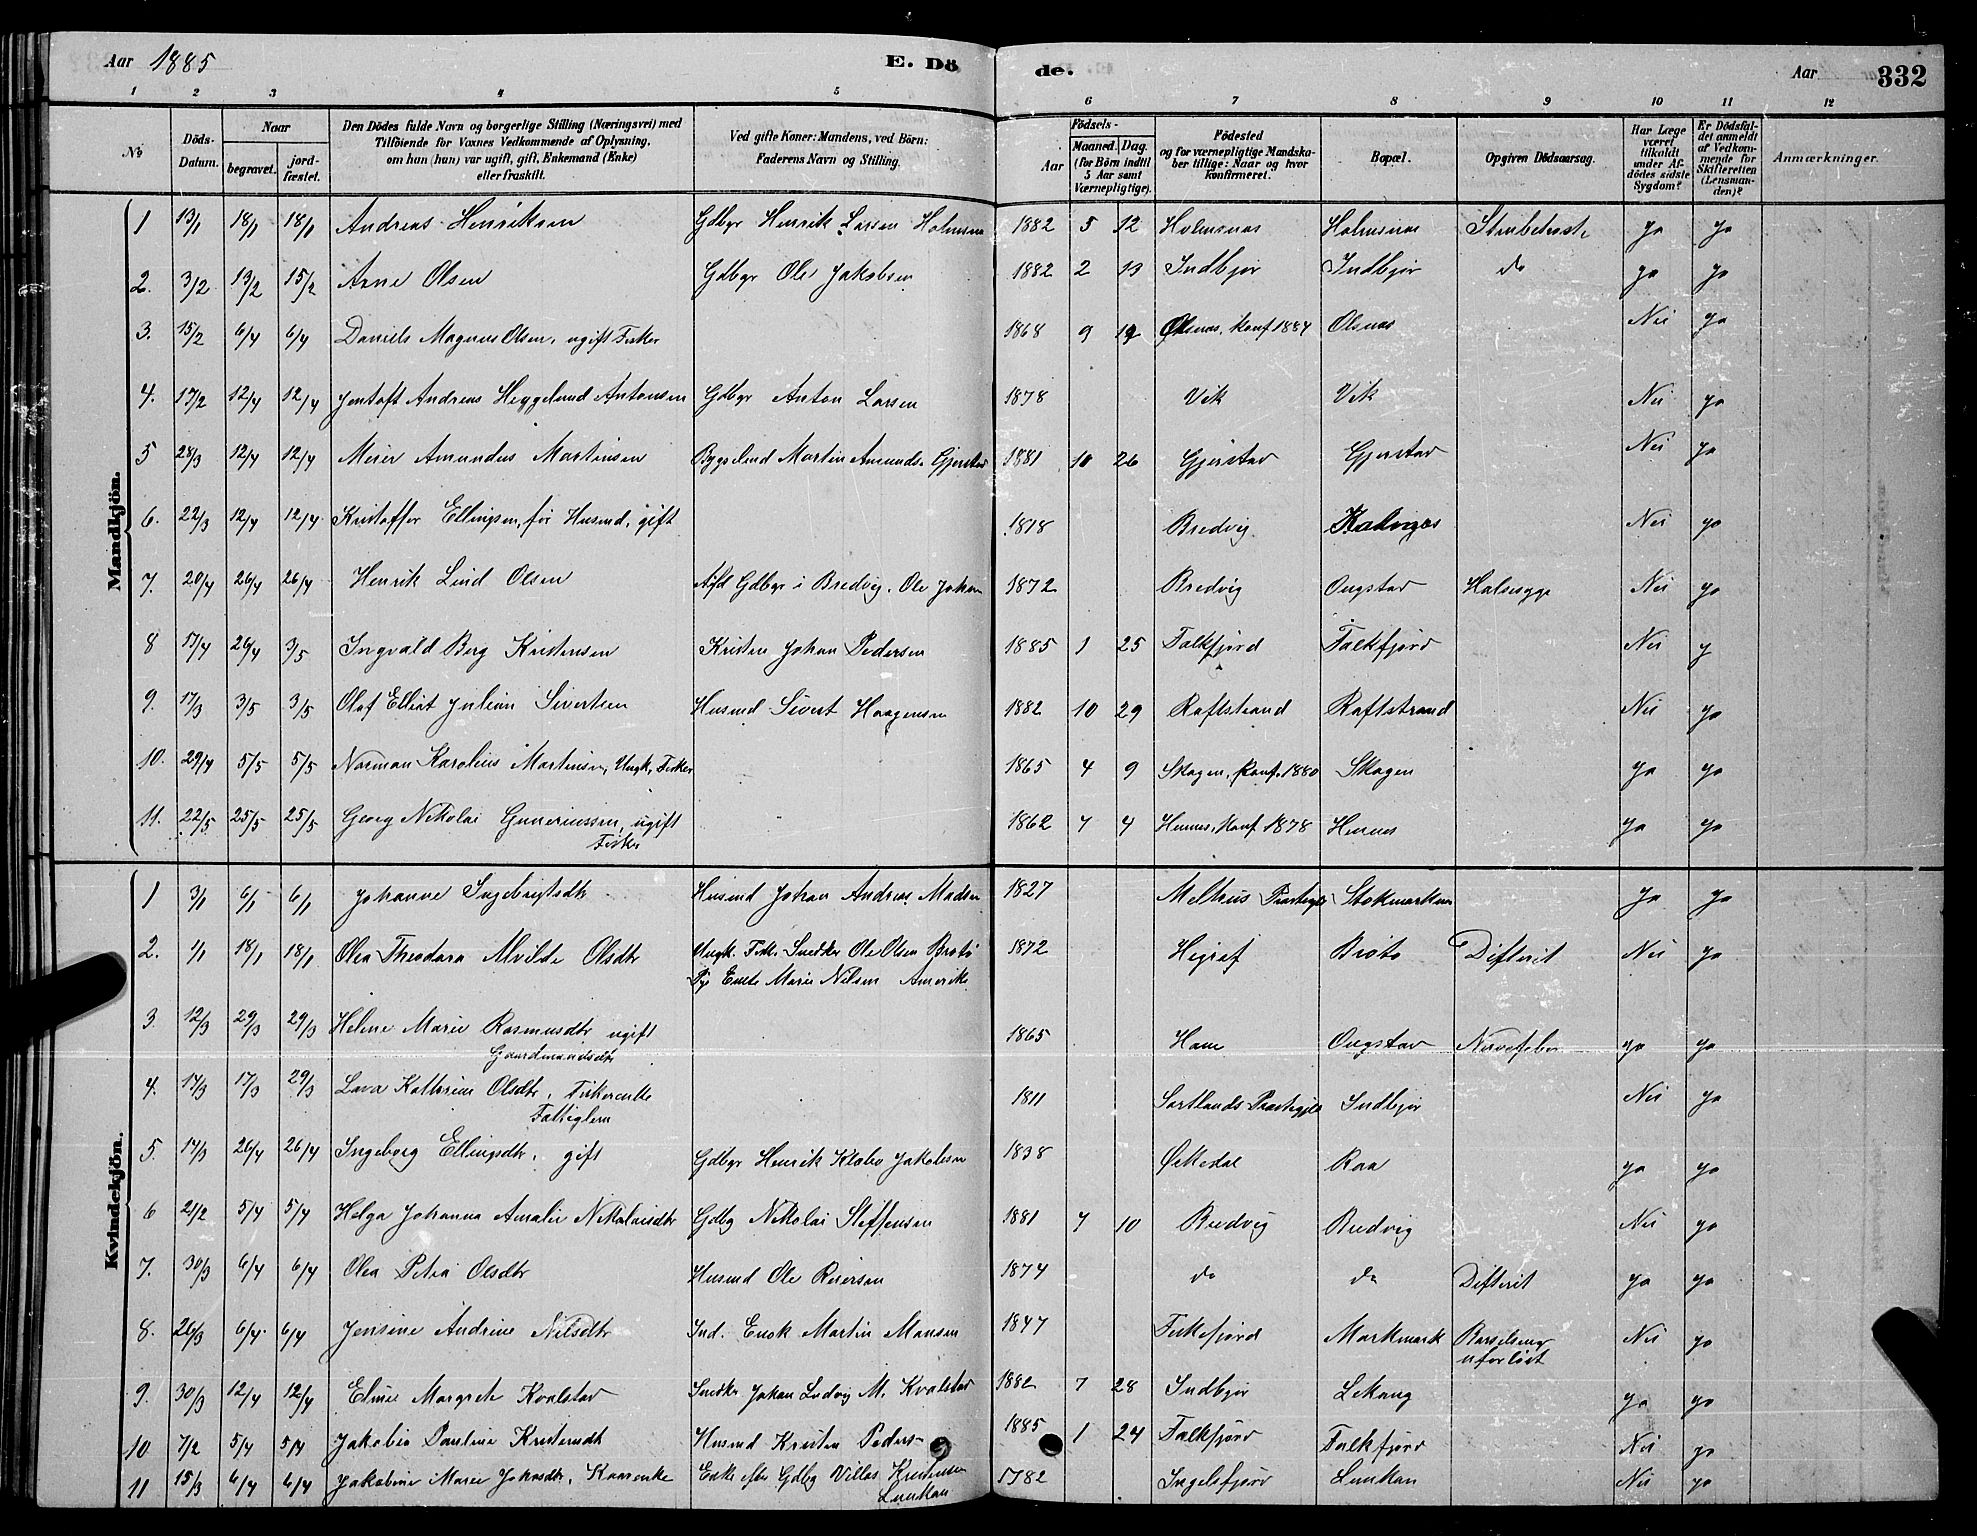 Aar 1885 E. Döde. Aar 332
1 2 3 4 5 6 7 8 9 10 11 12
No
Döds-Datum.
Naar
begravet.
jordfæstet.
Den Dödes fulde Navn og borgerlige Stilling (Næringsvei) med
Tilföiende for Voxnes Vedkommende af Oplysning,
om han (hun) var ugift, gift, Enkemand (Enke)
eller fraskilt.
Ved gifte Koner: Mandens, ved Börn:
Faderens Navn og Stilling.
Födsels-
Aar
Maaned. Dag.
(for Börn indtil
5 Aar samt
Værnepligtige).
Födested
og for værnepligtige Mandskaber tillige: Naar og hvor
konfirmeret.
Bopæl.
Opgiven Dödsaarsag.
Har Læge
været
tilkaldt
under Afdödes sidste
Sygdom?
Er Dödsfaldet anmeldt
af Vedkommende for
Skifteretten
(Lensmanden)?
Anmærkninger.
Mandkjön.
1 13/1 18/1 18/1 Andreas Henriksen Gdbgr Henrik Larsen Holmsn 1882 5 12 Holmsnas Holmsnas ja ja
2. 3/2 13/2 15/2 Arne Olsen Gdbgr Ole Jakobsen 1882 2 13 Indbjor Indbjor do ja ja
3. 15/2 6/4 6/4 Daniels Magnus Olsen, ugift Fisker 1868 9 12 Olsnas, Konf. 1884 Olsnas Nei ja
4. 17/2 12/4 12/4 Jentoft Andreas Heggelund Antonsen Gdbgr Anton Larsen 1878 Vik Vik Nei ja
5 28/3 12/4 12/4 Meier Amandus Martinsen Bygselmd Martin Amunds. Gjerstad 1881 10 26 Gjerstad Gjerstad Nei ja
6. 22/3 12/4 12/4 Kristoffer Ellingsen, før Husmd, gift 1818 Bredvig Kalvigas Nei ja
7. 20/4 26/4 26/4 Henrik Lind Olsen Afd Gdbgr i Bredvig, Ole Johan 1872 Bredvig Ongstad Halssyge Nei ja
8 17/4 26/4 3/5 Ingvald Berg Kristensen Kristen Johan Pedersen 1885 1 25 Falkfjord Falkfjord Nei j
9. 17/3 3/5 3/5 Olaf Elliot Julius Sivertsen Husmd Sivert Haagensen 1882 10 29 Raftstrand Raftstrand Nei ja
10. 29/4 5/5 5/5 Norman Karolius Martinsen, Ungk, Fisker 1865 4 9 Skagen, Konf. 1880 Skagen ja ja
11. 22/5 25/5 25/5 Georg Nikolai Guneriussen, ugift 1862 4 4 Hennes, Konf 1878 Hennes ja ja
Fisker
Kvindekjön.
1 3/1 6/1 6/1 Johanne Ingebrigtsdtr Husmd Johan Andreas Madsen 1827 Melhus Prastegjld Stokmarknes ja ja
2. 1/1 18/1 18/1 Olea Theodora Alvilde Olsdtr Ungk. Fisk. Snedker Ole Olsen Brotø 1872 Higraf Brotø Difterit Nei ja
Pige Enete Marie Nilsen Amerika
3. 12/3 29/3 29/3 Helene Marie Rasmusdtr ugift 1865 Hane Ongstad Nervefeber ja ja
Gaardmandsdtr
4. 14/3 17/3 29/3 Lava Kathrine Olsdtr, Fiskerenke 1811 Sortlands Prastegjld Indbjor Nei ja
Fattiglem
5. 14/3 26/4 26/4 Ingeborg Ellingsdtr, gift Gdbgr Henrik Klabo Jakobsen 1838 Økedal Raa ja ja
6 21/2 5/4 5/4 Helga Johanna Amalie Nikolaisdtr Gdbg Nikolai Steffensen 1881 7 10 Bredvig Bredvig Nei ja
7. 30/3 6/4 6/4 Olea Petra Olsdtr Husmd Ole Reiersen 1874 do do Difterit ja ja
8. 26/3 6/4 6/4 Jensine Andrine Nilsdtr Ind. Enok Martin Monsen 1847 Fiskefjord Markmark Barselseng Nei ja
uforløst
9. 30/3 12/4 12/4 Elmie Margrete Kvalstad Snedkr Johan Ludvig M. Kvalstad 1882 7 28 Indbjor Lekang ja ja
10 7/2 5/4 5/4 Jakobia Pauline Kristensdt Husmd Kristen Peders- 1885 1 24 Falkfjord Falkfjord Nei ja
11 15/3 6/4 6/4 Jakobine Marie Johnsdtr, Kaarenke Enke efter Gdbg Villas Kristensen 1782 Ingelsfjord Lunkan Nei ja
Lunkan